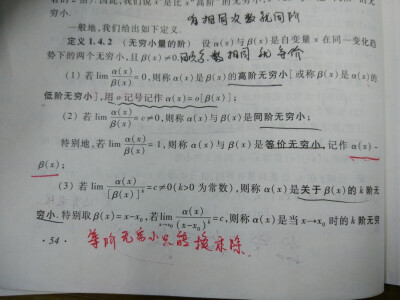 穷小.
有相同次数就同阶
一般地,我们给出如下定义.
定义1.4.2 (无穷小量的阶) 设α(x)与β(x)是自变量x在同一变化趋
势下的两个无穷小,且β(x)≠0.
系数相同 就 等价
(1) 若lim α(x)/β(x)=0,则称α(x)是β(x)的高阶无穷小[或称β(x)是α(x)的
低阶无穷小],用o记号记作α(x)=o[β(x)];
(2) 若lim α(x)/β(x)=c≠0,则称α(x)与β(x)是同阶无穷小;
特别地,若lim α(x)/β(x)=1,则称α(x)与β(x)是等价无穷小,记作α(x)~
β(x);
(3) 若lim α(x)/[β(x)]^k=c≠0(k>0为常数),则称α(x)是关于β(x)的k阶无
穷小.特别取β(x)=x-x₀,若lim x→x₀ α(x)/(x-x₀)^k=c,则称α(x)是当x→x₀时的k阶无穷
·54·
等阶无穷小只能换乘除